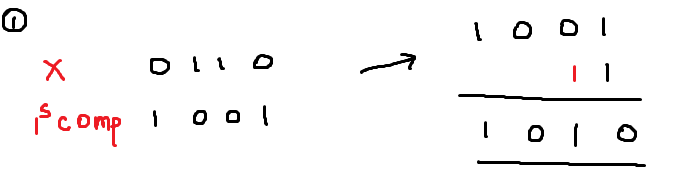 1
X 0 1 1 0
1s comp 1 0 0 1
1 0 0 1
1 1
1 0 1 0